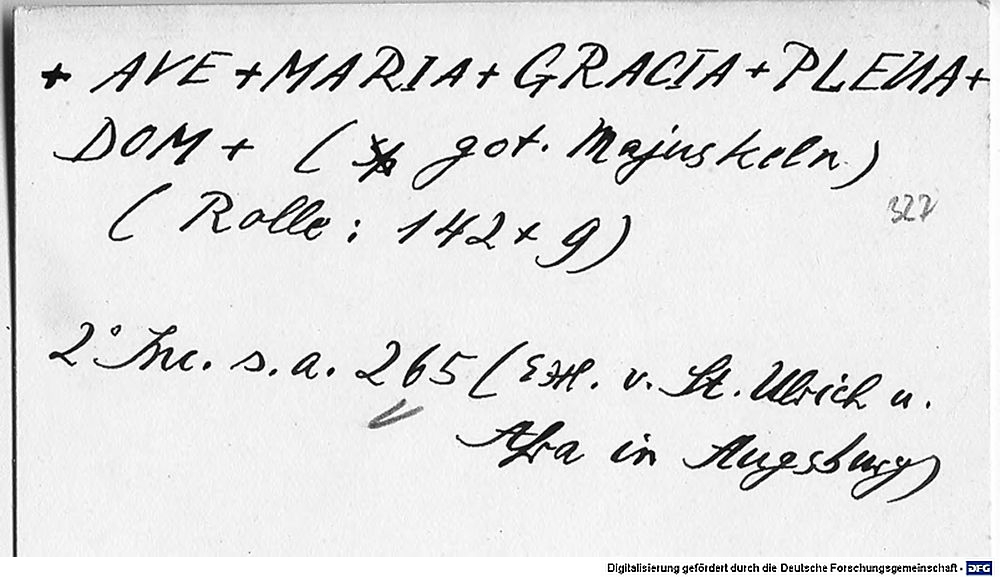 + AVE + MARIA + GRACIA + PLENA +
DOM + ( got. Majuskeln)
( Rolle : 142 x 9)
327
2° Inc. s. a. 265 (Exl. v. St. Ulrich u.
Afra in Augsburg)
Digitalisierung gefördert durch die Deutsche Forschungsgemeinschaft - DFG